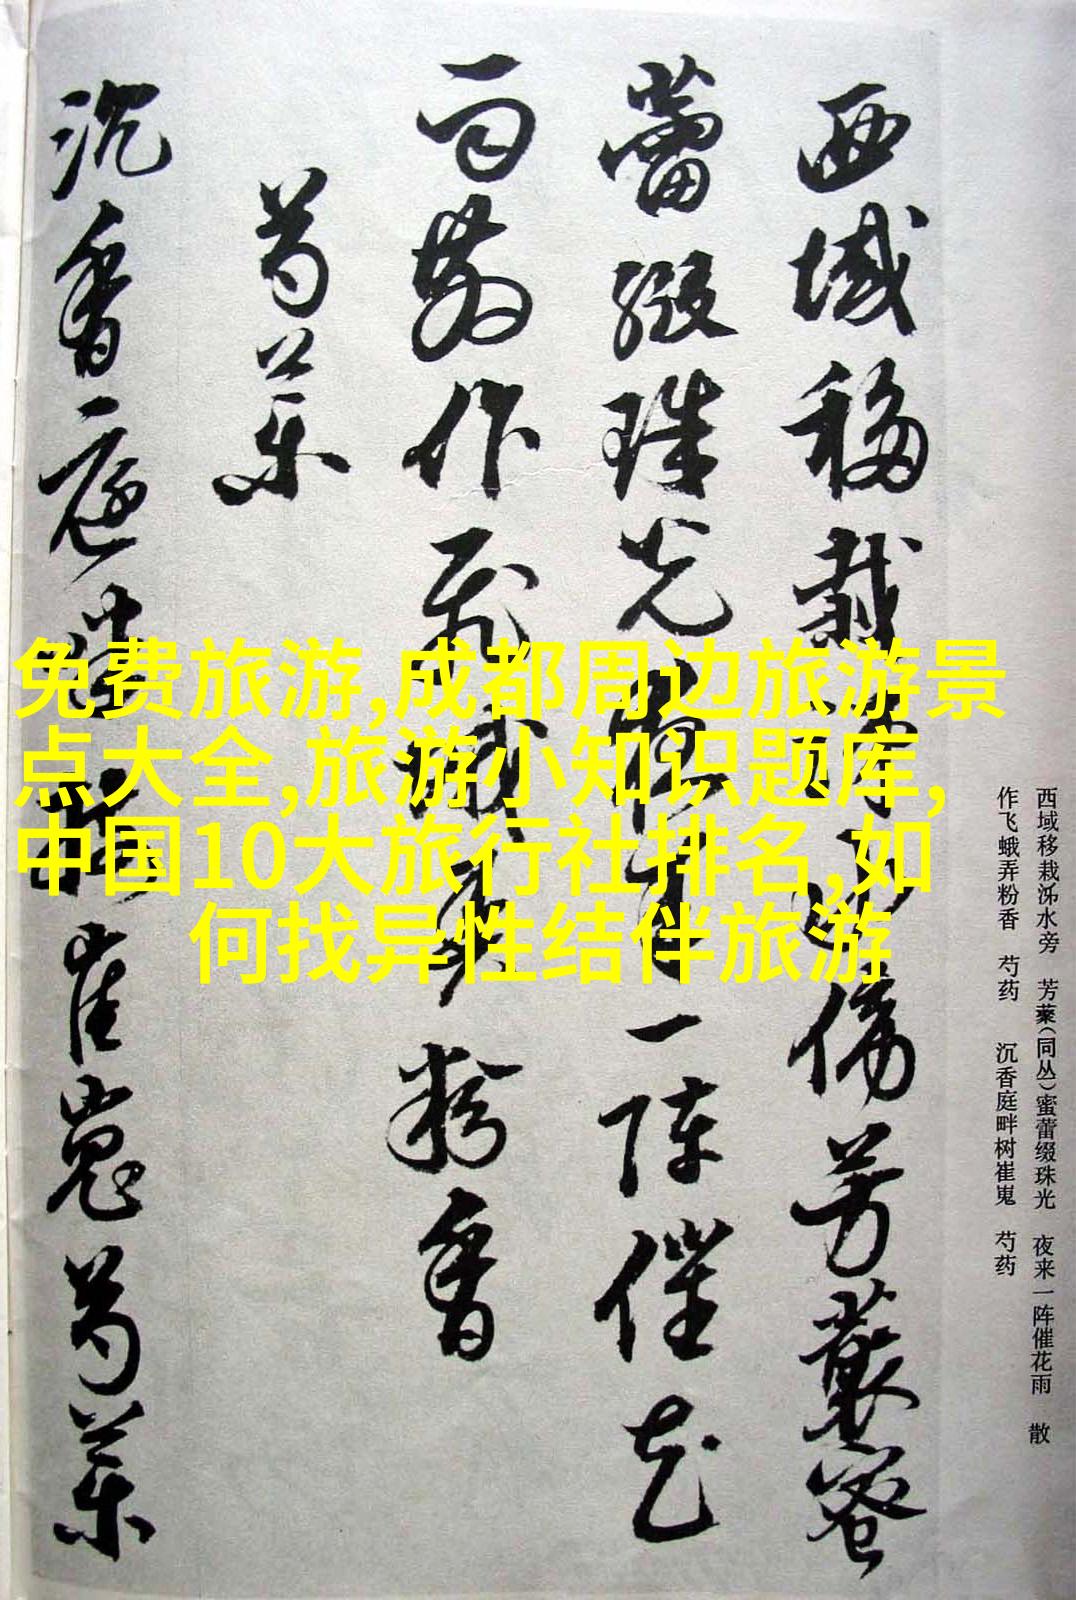 西域移栽泲水旁 芳藂(同丛)蜜蕾缀珠光 夜来一阵催花雨 散
作飞蛾弄粉香 芍药 沉香庭畔树崔嵬 芍药
西域移栽泲水傍芳藂蜜
蕾缀珠光夜来一阵催花
雨散作飛蛾弄粉香
芍药
沉香庭畔树崔嵬芍药
免费旅游,成都周边旅游景
点大全,旅游小知识题库,
中国10大旅行社排名,如
何找异性结伴旅游